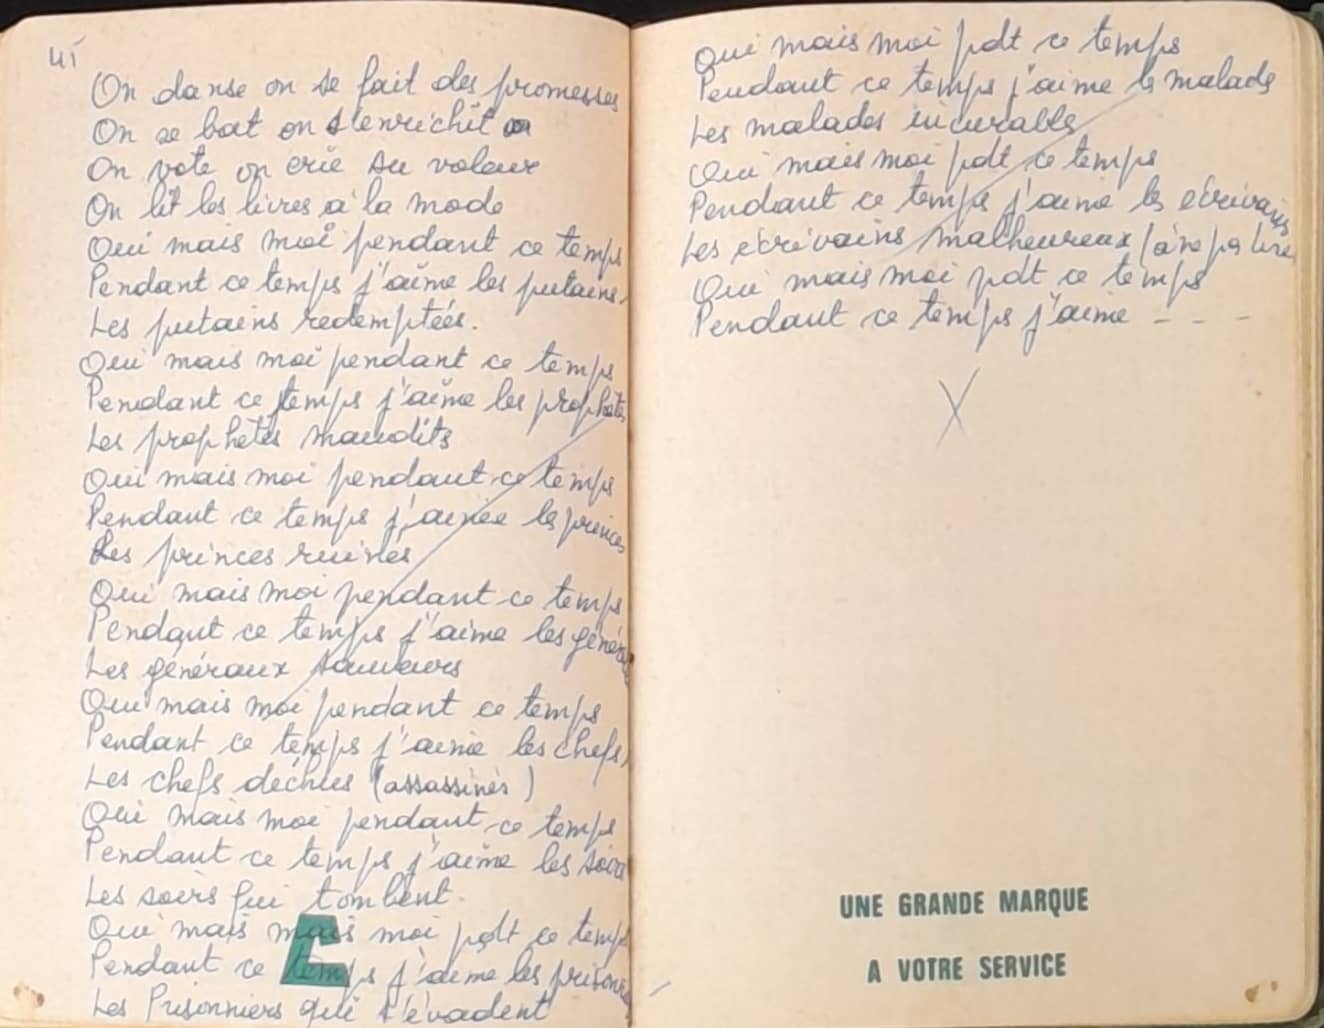 45
On danse on se fait des promesses
On se bat on s'enrichit on
On vote on crie au voleur
On lit les livres à la mode
Oui mais moi pendant ce temps
Pendant ce temps j'aime les putains
Les putains redemptées.
Oui mais moi pendant ce temps
Pendant ce temps j'aime les prophètes
Les prophètes maudits
Oui mais moi pendant ce temps
Pendant ce temps j'aime les princes
Les princes ruinés
Oui mais moi pendant ce temps
Pendant ce temps j'aime les génér
Les généraux sauveurs
Oui mais moi pendant ce temps
Pendant ce temps j'aime les chefs
Les chefs déchus (assassinés)
Oui mais moi pendant ce temps
Pendant ce temps j'aime les soirs
Les soirs qui tombent.
Oui mais mais moi pdt ce temps
Pendant ce temps j'aime les prisonn
Les Prisonniers qui s'évadent
Oui mais moi pdt ce temps
Pendant ce temps j'aime les malades
Les malades incurables
Oui mais moi pdt ce temps
Pendant ce temps j'aime les écrivains
Les écrivains malheureux (à ne pas lire
Oui mais moi pdt ce temps
Pendant ce temps j'aime - - -
X
UNE GRANDE MARQUE
A VOTRE SERVICE